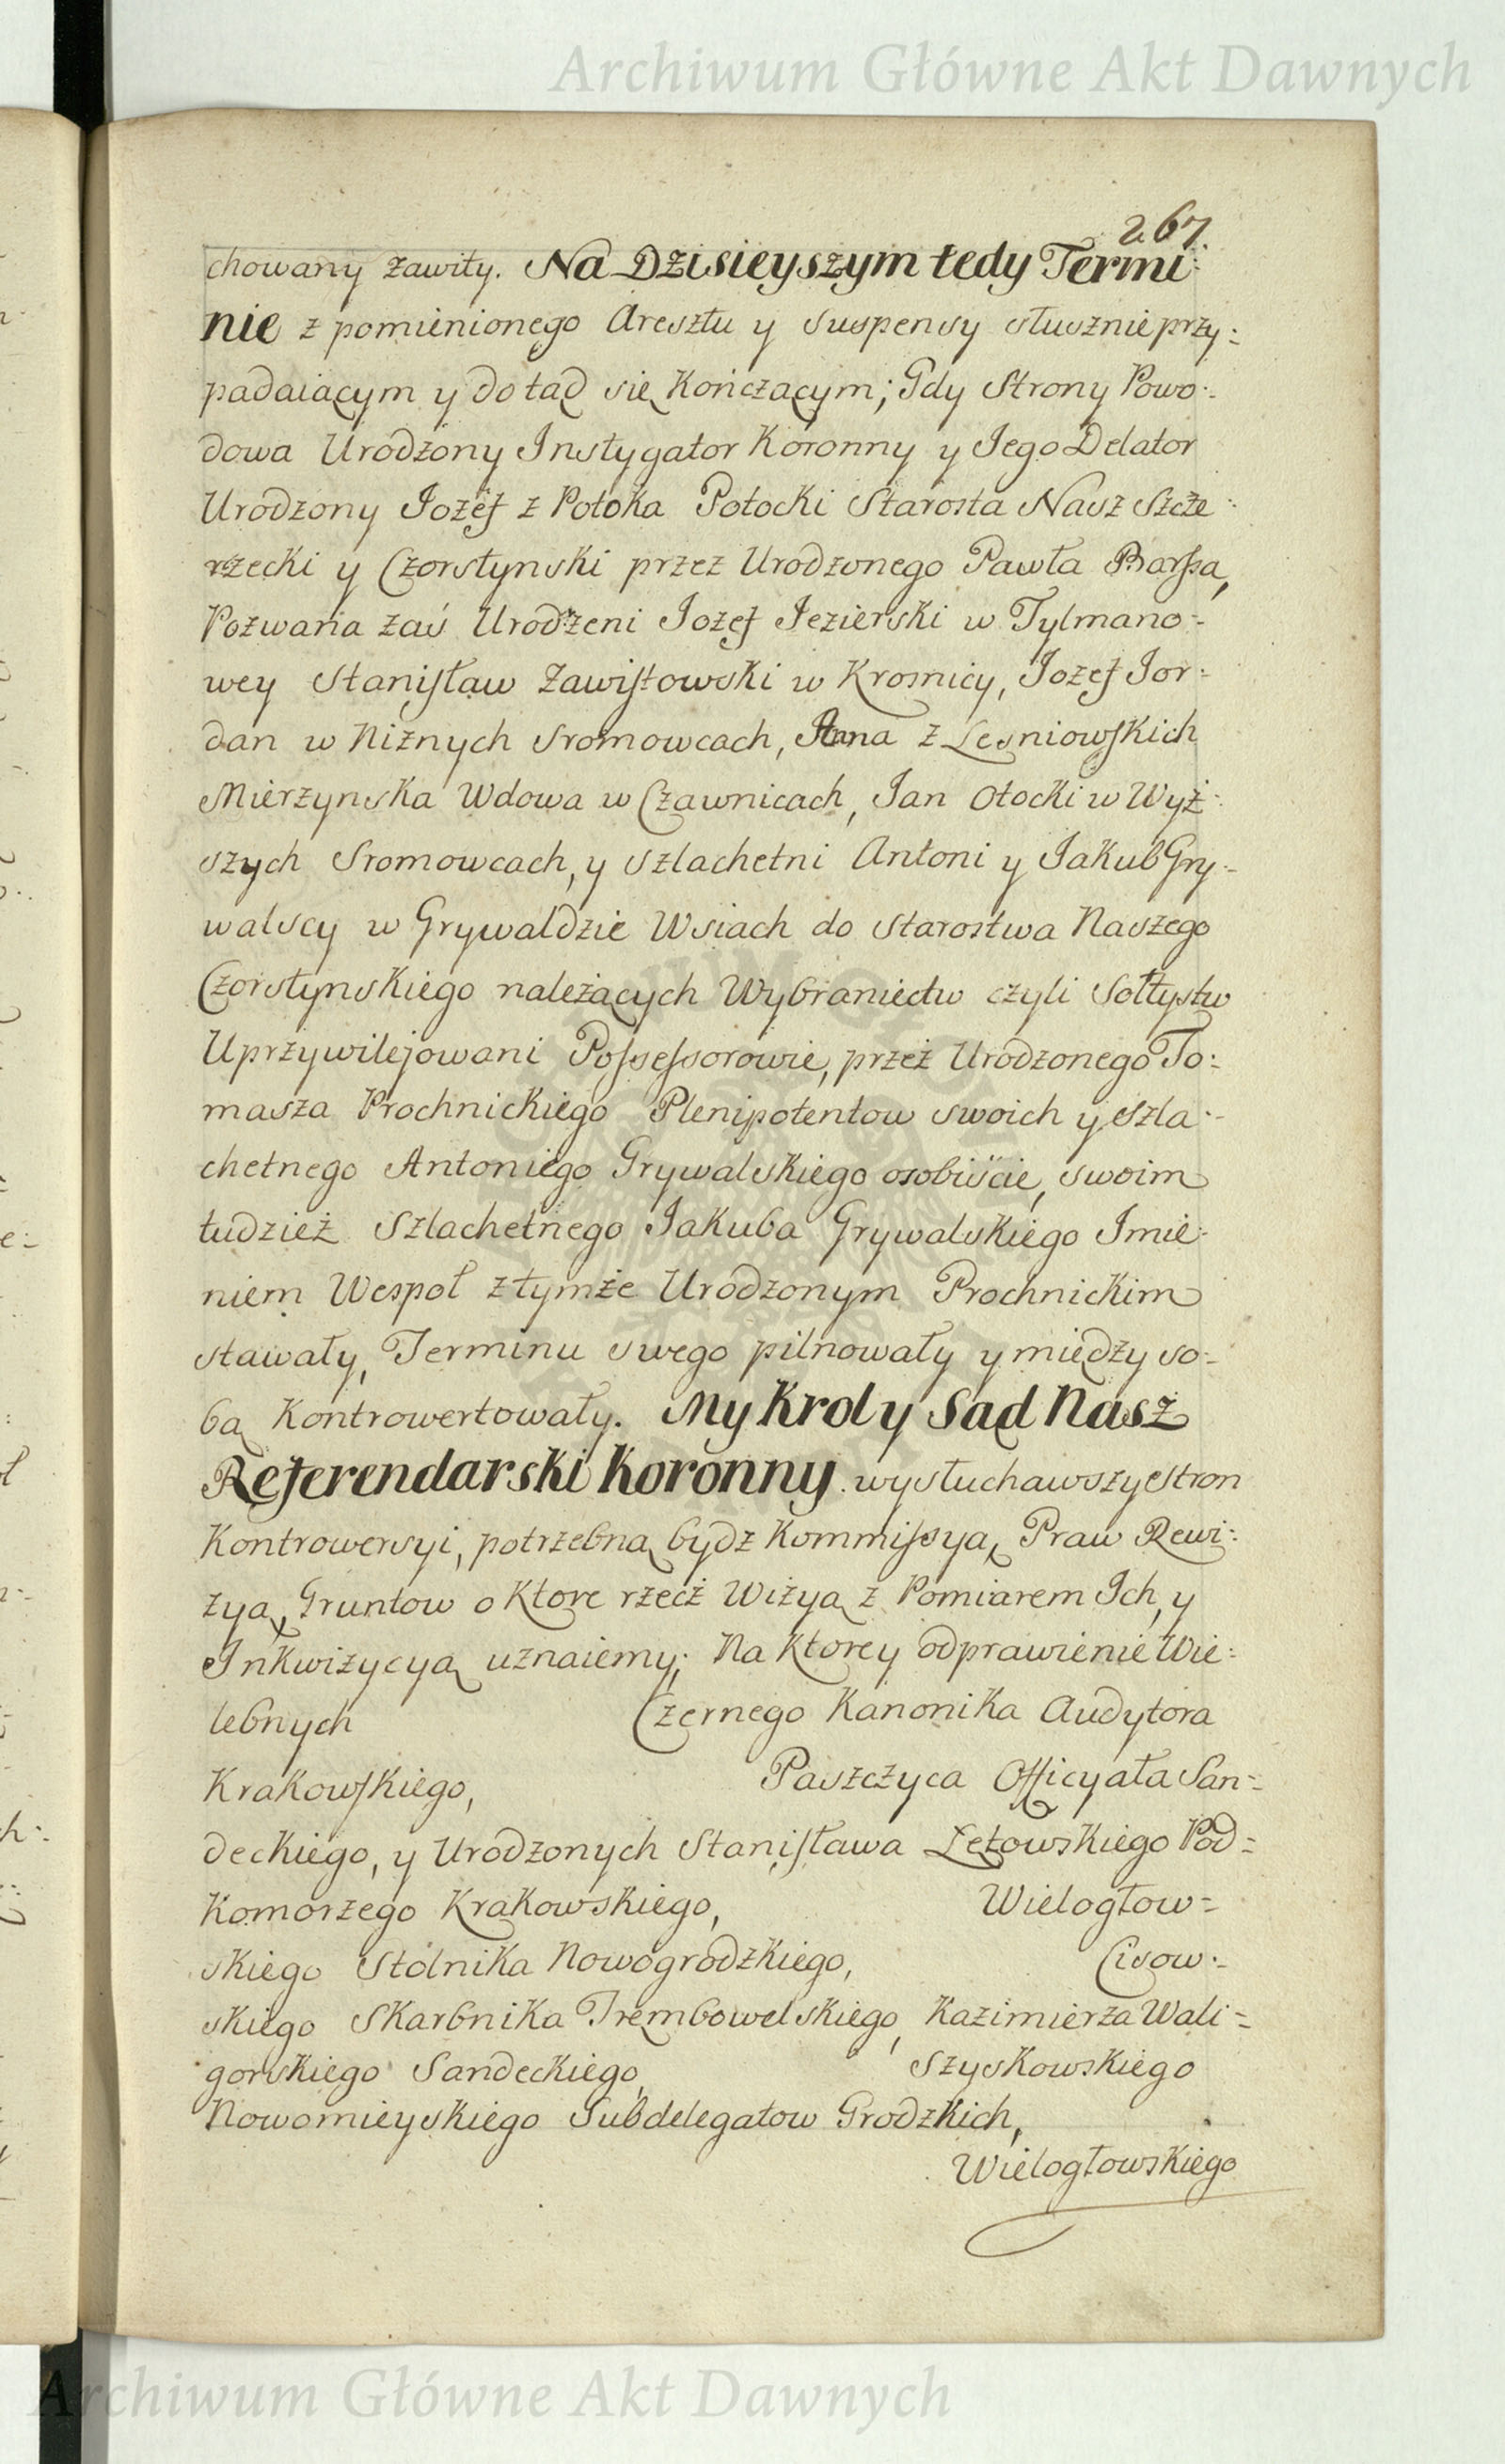 Archiwum Główne Akt Dawnych
267.
chowany zawity. Na Dzisieyszym tedy Termi:
nie z pomienionego Aresztu y Suspensy słusznie przy:
padaiącym y dotąd się Kończącym; Gdy Strony Powo:
dowa Urodzony Instygator Koronny y Iego Delator
Urodzony Iozef z Potoka Potocki Starosta Nasz Szcze:
rzecki y Czorstynski przez Urodzonego Pawła Barssa,
Pozwana zaś Urodzeni Iozef Iezierski w Tylmano:
wey Stanisław Zawistowski w Krosnicy, Iozef Ior:
dan w Niznych Sromowcach, Anna z Lesniowskich
Mierzynska Wdowa w Czawnicach, Ian Otocki w Wyż:
szych Sromowcach, y Szlachetni Antoni y Iakub Gry:
walscy w Grywaldzie Wsiach do Starostwa Naszego
Czorstynskiego należących Wybraniectw czyli Sołtystw
Uprzywilejowani Possessorowie, przez Urodzonego To:
masza Prochnickiego Plenipotentow swoich y Szla:
chetnego Antoniego Grywalskiego osobiście, swoim
tudzież Szlachetnego Iakuba Grywalskiego Imie:
niem Wespoł z tymże Urodzonym Prochnickim
stawały, Terminu swego pilnowały y między so:
bą Kontrowertowały. My Krol y Sąd Nasz
Referendarski Koronny wysłuchawszy Stron
Kontrowersyi, potrzebną bydz Kommissyą, Praw Rewi:
zyą, Gruntow o Ktore rzecz Wizyą z Pomiarem Ich, y
Inkwizycyą uznaiemy; Na Ktorey odprawienie Wie:
lebnych Czernego Kanonika Audytora
Krakowskiego, Paszczyca Officyała San:
deckiego, y Urodzonych Stanisława Łętowskiego Pod:
Komorzego Krakowskiego, Wielogłow:
skiego Stolnika Nowogrodzkiego, Lisow:
skiego Skarbnika Trembowelskiego, Kazimierza Wali:
gorskiego Sandeckiego, Szyskowskiego
Nowomieyskiego Subdelegatow Grodzkich,
Wielogłowskiego
Archiwum Główne Akt Dawnych